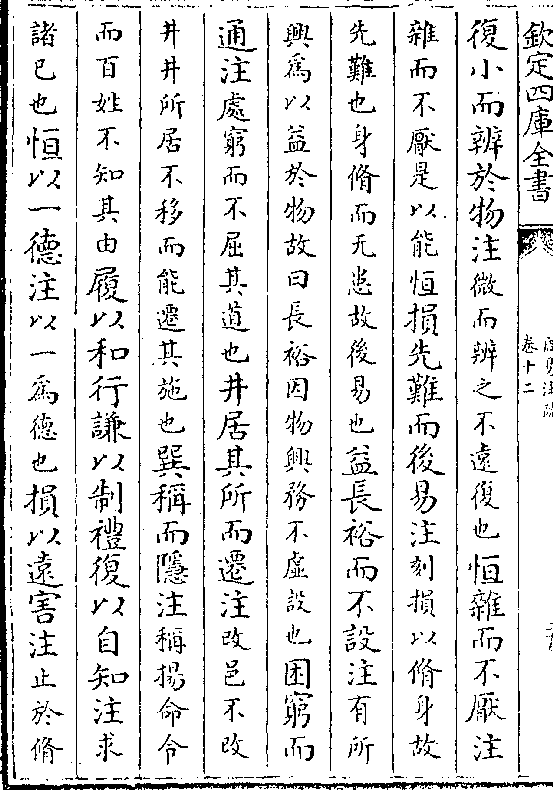 欽定四庫全書
卷十二
復小而辨於物注微而辨之不遠復也恒雜而不厭注
雜而不厭是以能恒損先難而後易注刻損以脩身故
先難也身脩而无患故後易也益長裕而不設注有所
興為以益於物故曰長裕因物興務不虛設也困窮而
通注處窮而不屈其道也井居其所而遷注改邑不改
井井所居不移而能遷其施也巽稱而隱注稱揚命令
而百姓不知其由履以和行謙以制禮復以自知注求
諸已也恒以一德注以一為德也損以遠害注止於脩